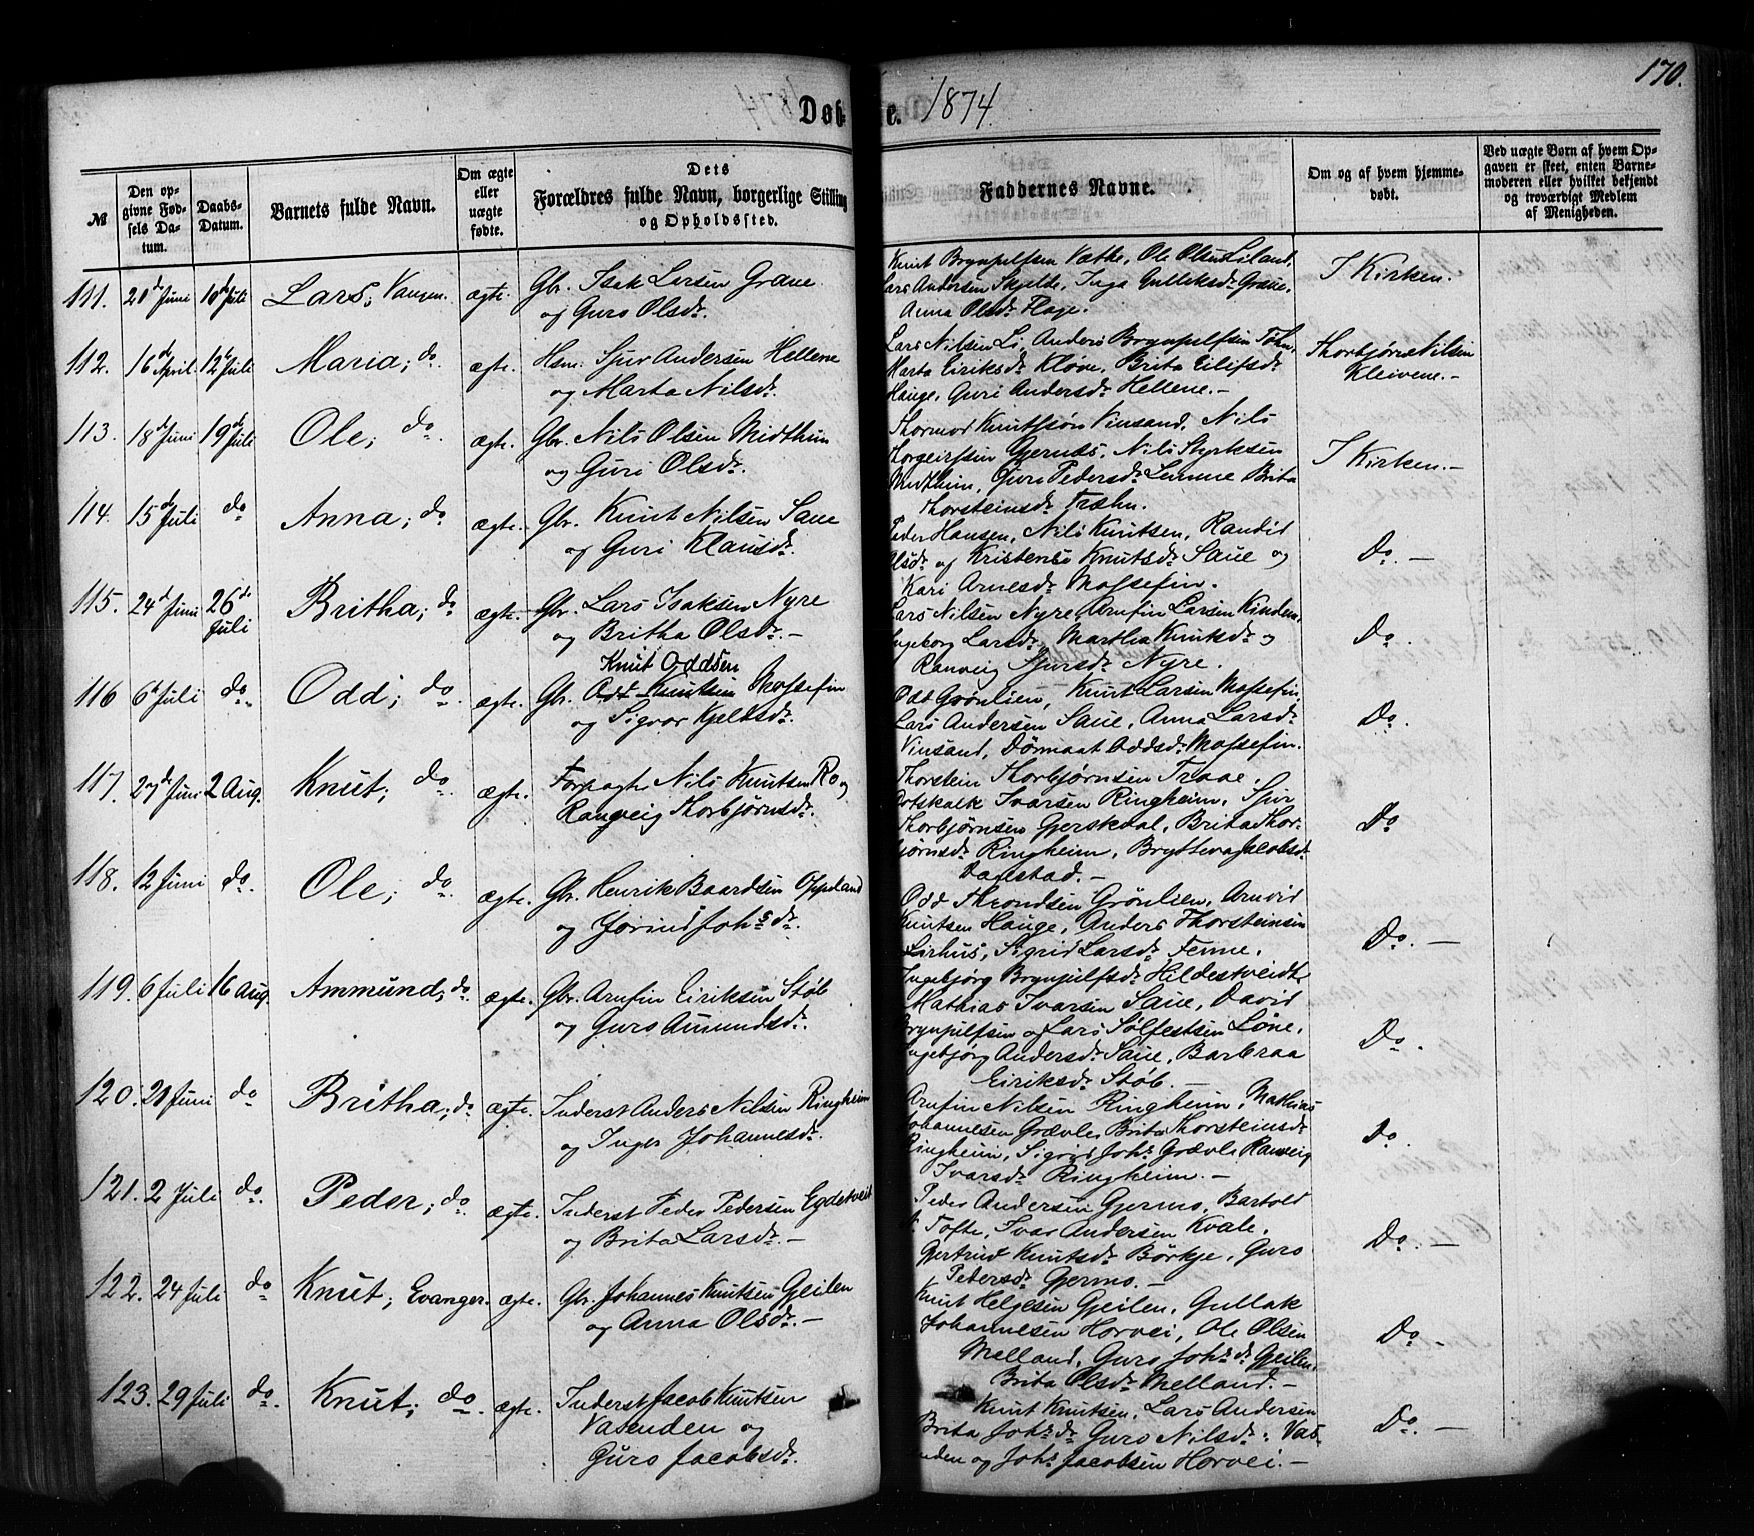 170.
Døb-
e. 1874.
№
Den op-
givne Fød-
sels Da-
tum.
Daabs-
Datum.
Barnets fulde Navn.
Om ægte
eller
uægte
fødte.
Dets
Forældres fulde Navn, borgerlige Stilling
og Opholdssted.
Faddernes Navne.
Om og af hvem hjemme-
døbt.
Ved uægte Børn af hvem Op-
gaven er skeet, enten Barne-
moderen eller hvilket bekjendt
og troværdigt Medlem
af Menigheden.
111. 20de Juni 10de Juli Lars; Vangen. ægte. Gbr. Isak Larsen Graue
og Guro Olsdr.
Knut Brynjulfsen Væthe, Ole Olsen Liland,
Lars Andersen Skjelde, Inga Gulleiksdr Graue,
Anna Olsdr Flage.
I Kirken.
112. 16de April 12te Juli Maria; do. ægte. Hsm. Sjur Andersen Hellene
og Marta Nilsdr.
Lars Nilsen Li, Anders Brynjulfsen Tøhn,
Marta Eiriksdr Kløve, Brita Eilifsdr
Hauge, Guri Andersdr Hellene.-
Thorbjørn Nilsen
Kleivene.-
113. 18de Juni 19de Juli Ole; do. ægte. Gbr. Nils Olsen Midthun
og Guri Olsdr.
Thormod Knutsøn Vinsand, Nils
Thorgeirsen Gjernæs, Nils Styrksen
Midtheim, Guro Pedersdr Lemme Brita
Thorsteinsdr Træhn.
I Kirken.-
114. 15de Juli do Anna; do. ægte. Gbr. Knut Nilsen Saue
og Guri Klausdr.
Peder Hansen, Nils Knutsen, Randid
Olsdr og Kristense Knutsdr Saue og
Kari Arnesdr Mossefin.
Do.-
115. 24de Juni 26de
Juli Britha; do ægte. Gbr. Lars Isaksen Nyre
og Britha Olsdr.-
Lars Nilsen Nyre, Arnfin Larsen Kindem,
Ingeborg Larsdr, Martha Knutsdr og
Ranveig Sjursdr Nyre.
Do.
Knut Oddsen
116 6te Juli do. Odd; do. ægte. Gbr. Odd Knutsen Mossefin
og Sigvor Kjeldsdr.
Odd Grønlien, Knut Larsen Mossefin,
Lars Andersen Saue, Anna Larsdr
Vinsand, Dørmaat Oddsdr Mossefin.
Do.
117. 27de Juni 2 Aug. Knut; do. ægte. Forpagtr Nils Knutsen Ro og
Rangveig Thorbjørnsdr.
Thorstein Thorbjørnsen Traae,
Botskalk Ivarsen Ringheim, Sjur
Thorbjørnsen Gjerskdal, Brita Thor-
bjørnsdr Ringheim, Brytteva Jacobsdr
Dagestad.-
Do
118. 12 Juni do. Ole; do. ægte. Gbr. Henrik Baardsen Oppeland
og Jørind Johsdr.
Odd Throndsen Grønlien, Arnvid
Knutsen Hauge, Anders Thorsteinsen
Lirhus, Sigrid Larsdr Fenne,
Ingebjørg Brynjulfsdr Hildestveidt
Do.-
119. 6 Juli 16 Aug. Ammund; do. ægte. Gbr. Arnfin Eiriksen Støb
og Guro Amundsdr.
Mathias Ivarsen Saue, David
Brynjulfsen og Lars Sølfestsen Løne,
Ingebjørg Andersdr Saue, Barbraa
Eiriksdr Støb.-
Do.
120. 20 Juni do Britha; do. ægte. Inderst Anders Nilsen Ringheim
og Inger Johannesdr.
Arnfin Nilsen Ringheim, Mathias
Johannesen Grævle, Brita Thorsteinsdr
Ringheim, Sigrid Johsdr Grævle Ranveig
Ivarsdr Ringheim.-
Do.
121. 2 Juli do. Peder; do. ægte. Inderst Peder Pedersen Egdetveit
og Brita Larsdr.-
Peder Andersen Gjermo, Bartold
Tofte, Ivar Andersen Kvale,
Gjertrud Knutsdr Børkje, Guro
Pedersdr Gjermo.-
Do.-
122. 24 Juli do Knut; Evanger. ægte. Gbr. Johannes Knutsen Geilen
og Anna Olsdr.-
Knut Helgesen Gjeilen, Gullak
Johannesen Horvei, Ole Olsen
Melland, Guro Johsdr Gjeilen,
Brita Olsdr Melland.-
Do.
123. 29 Juli do. Knut; do. ægte. Inderst Jacob Knutsen
Vasenden og
Guro Jacobsdr.
Knut Knutsen, Lars Andersen
Brita Johsdr Guro Nilsdr: Vas-
enden og Johs Jacobsen Horvei.-
Do.-